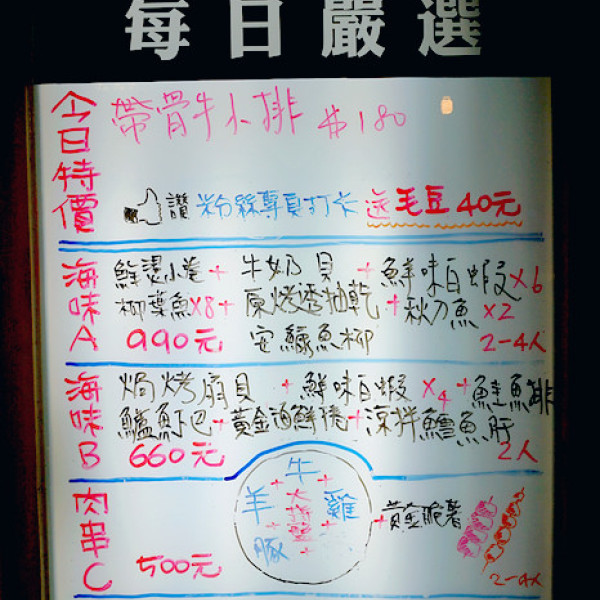 每日嚴選
今日特價
帶骨牛小排 $180
讚 粉絲專頁打卡 送毛豆40元
海味A
鮮燙小卷+牛奶貝+鮮味白蝦x6
柳葉魚x8+原烤透抽乾+秋刀魚x2
990元 安鱇魚柳 2-4人
海味B
焗烤扇貝+鮮味白蝦x4+鮭魚排
鱸魟巴+黃金海鮮捲+涼拌鱈魚肝
660元 2人
肉串C
牛
羊 雞
豚
大拼盤
+黃金脆薯
500元 2-4人